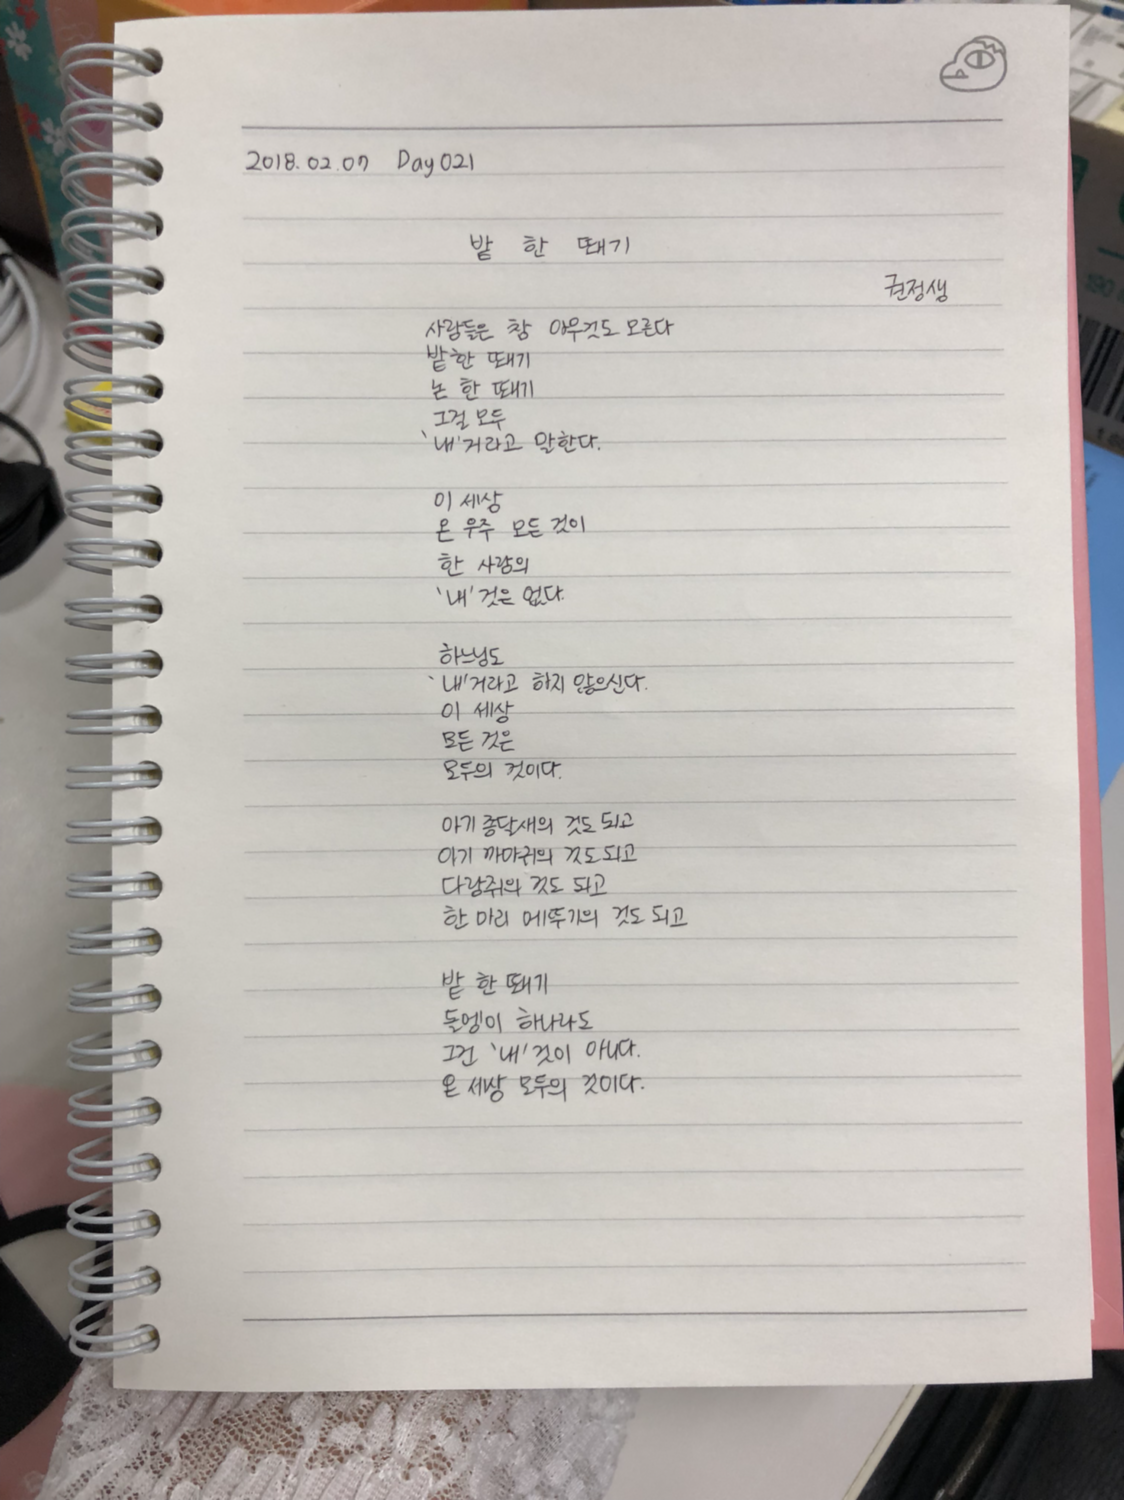 2018.02.07 Day 021
밭 한 뙈기
권정생
사람들은 참 아무것도 모른다
밭 한 뙈기
논 한 뙈기
그걸 모두
'내'거라고 말한다.
이 세상
온 우주 모든 것이
한 사람의
'내'것은 없다.
하느님도
'내'거라고 하지 않으신다.
이 세상
모든 것은
모두의 것이다.
아기 종달새의 것도 되고
아기 까마귀의 것도 되고
다람쥐의 것도 되고
한 마리 메뚜기의 것도 되고
밭 한 뙈기
돌멩이 하나라도
그건 '내'것이 아니다.
온 세상 모두의 것이다.